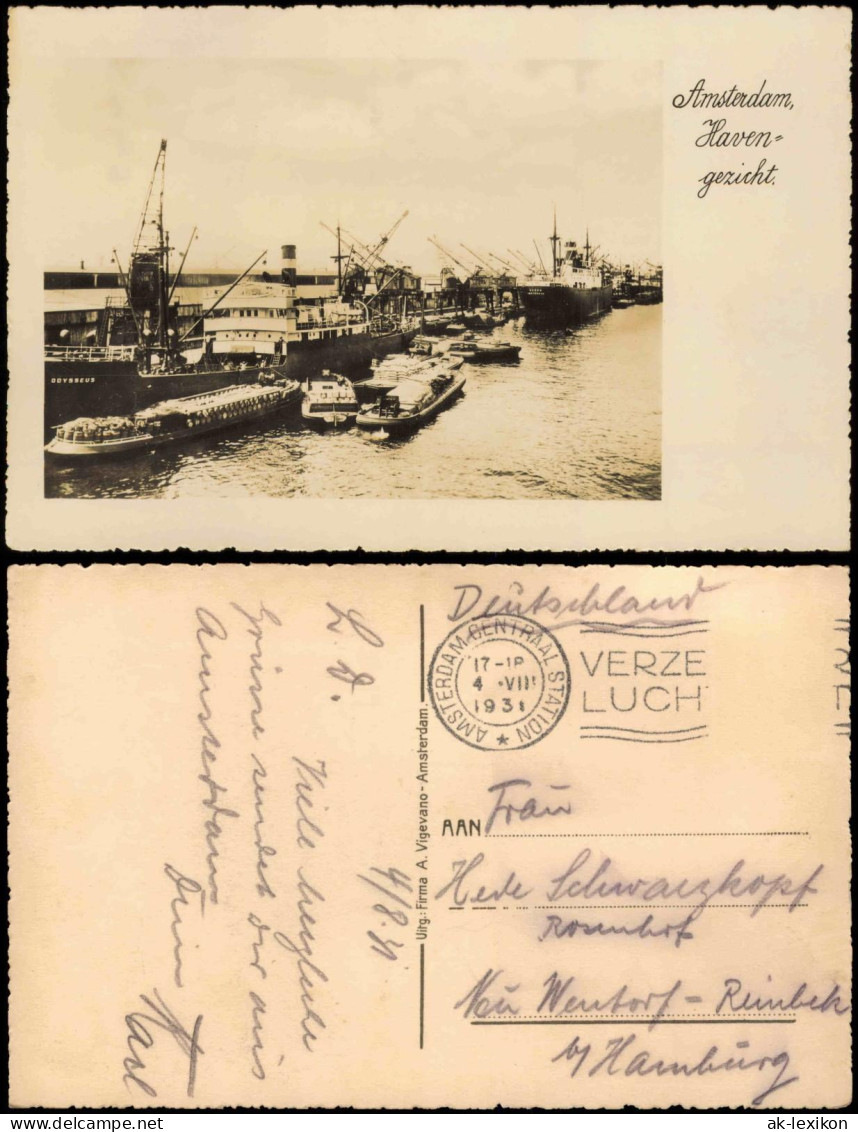 Amsterdam,
Haven=
gezicht.
ODYSSEUS
Deutschland
AMSTERDAM CENTRAAL STATION
17-18
4 VIII
1931
VERZE
LUCH
AAN Frau
Hede Schwarzkopf
Rosenhof
Neu Wentorf = Reinbek
b/ Hamburg
Uitg.: Firma A. Vigevano - Amsterdam.
4/8.31
L. H.
Viele herzliche
Grüsse sendet dir aus
Amsterdam
Dein
Karl
ak-ansichtskarten.de
ak-lexikon